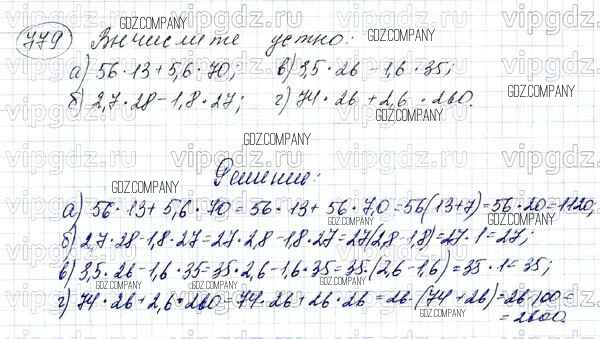 779 Вычислите устно:
а) 56·13+5,6·70; в) 3,5·26-1,6·35;
б) 2,7·28-1,8·27; г) 74·26+2,6·260.
Решение:
а) 56·13+5,6·70=56·13+56·7,0=56(13+7)=56·20=1120;
б) 2,7·28-1,8·27=27·2,8-1,8·27=27(2,8-1,8)=27·1=27;
в) 3,5·26-1,6·35=35·2,6-1,6·35=35·(2,6-1,6)=35·1=35;
г) 74·26+2,6·260=74·26+26·26=26·(74+26)=26·100=
=2600.
GDZ.COMPANY
vipgdz.ru